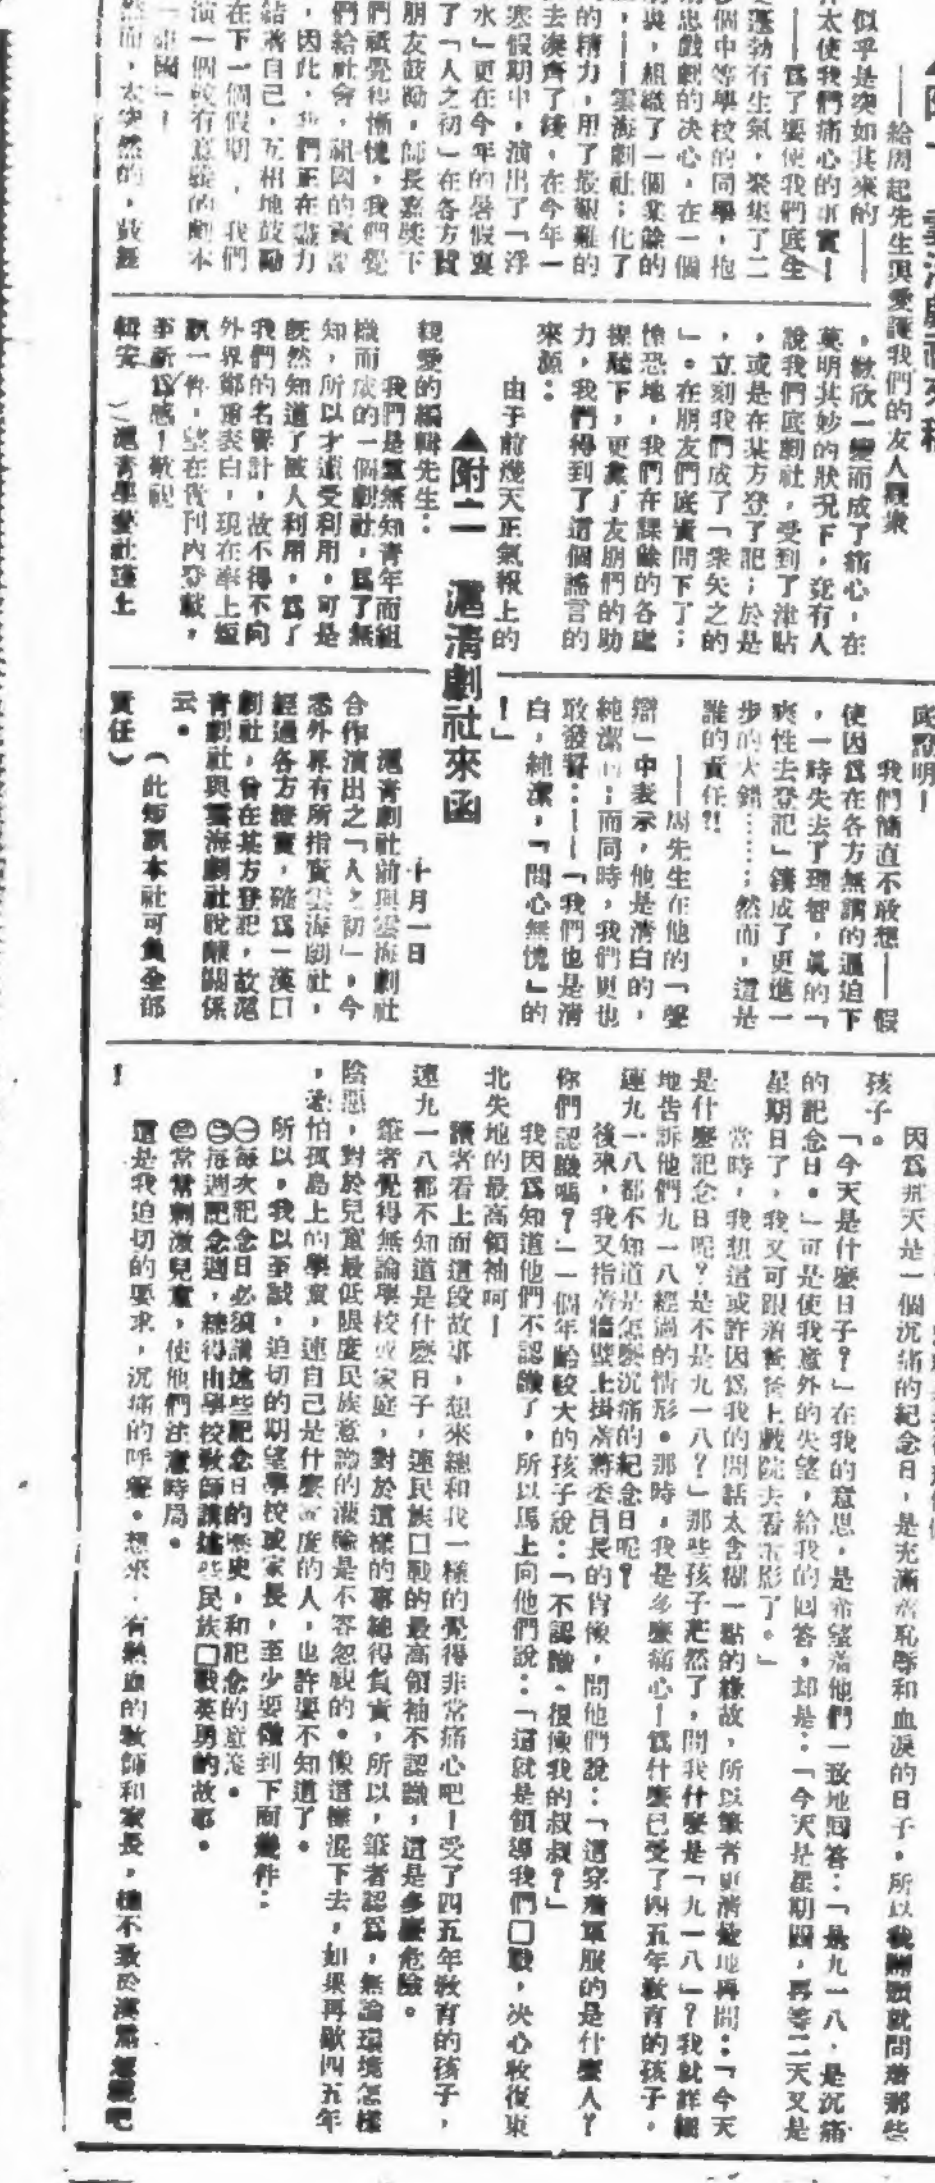 ——給周起先生與愛護我們的友人觀衆
似乎是突如其來的——
太使我們痛心的事實！
——爲了要使我們底生
蓬勃有生氣，聚集了二
個中等學校的同學，抱
忠戲劇的决心，在一個
，組織了一個業餘的
——雲海劇社；化了
的精力，用了最艱難的
去湊齊了錢，在今年一
寒假期中，演出了「浮
水」更在今年的暑假裏
了「人之初」在各方賢
朋友鼓勵，師長嘉獎下
們祇覺得慚愧，我們覺
們給社會，祖國的實
，因此，我們正在盡力
結着自己，互相地鼓勵
在下一個假期，我們
演一個較有意義的劇本
然而，太突然的，
，歡欣一變而成了痛心，在
莫明其妙的狀况下，竟有人
說我們底劇社，受到了津貼
，或是在某方登了記；於是
，立刻我們成了「衆矢之的
」。在朋友們底責問下了；
惶恐地，我們在課餘的各處
探聽下，更靠了友朋們的助
力，我們得到了這個謠言的
來源：
由于前幾天正氣報上的
▲附二 滬青劇社來函
親愛的編輯先生：
我們是羣無知青年而組
織而成的一個劇社，爲了無
知，所以才遭受利用，可是
既然知道了被人利用，爲了
我們的名譽計，故不得不向
外界鄭重表白，現在奉上短
訊一件，望在貴刊內登載，
至所爲感！敬祝
輯安
我們簡直不敢想——假
使因爲在各方無謂的逼迫下
，一時失去了理智，眞的「
爽性去登記」鑄成了更進一
步的大錯……；然而，這是
誰的責任?!
——周先生在他的「聲
辯」中表示，他是清白的，
純潔的；而同時，我們更也
敢發誓：——「我們也是清
白，純潔，『問心無愧』的
！」
十月一日
滬青劇社前與雲海劇社
合作演出之「人之初」，今
悉外界有所指責雲海劇社，
經過各方證實，確爲一漢口
劇社，曾在某方登記，故滬
青劇社與雲海劇社脫離關係
云。
（此短訊本社可負全部
責任）
孩子。
因爲那天是一個沉痛的紀念日，是充滿着恥辱和血淚的日子。所以我開頭就問着那些
「今天是什麽日子？」在我的意思，是希望着他們一致地回答：「是九一八，是沉痛
的記念日。」可是使我意外的失望，給我的回答，却是：「今天是星期四，再等二天又是
星期日了，我又可跟着爸爸上戲院去看電影了。」
當時，我想這或許因爲我的問話太含糊一點的緣故，所以筆者更清楚地再問：「今天
是什麽記念日呢？是不是九一八？」那些孩子茫然了，問我什麽是「九一八」？我就詳細
地告訴他們九一八經過的情形。那時，我是多麽痛心！爲什麽已受了四五年教育的孩子，
連九一八都不知道是怎麽沉痛的紀念日呢？
後來，我又指着牆壁上掛着蔣委員長的肖像，問他們說：「這穿着軍服的是什麽人？
你們認識嗎？」一個年齡較大的孩子說：「不認識、很像我的叔叔？」
我因爲知道他們不認識了，所以馬上向他們說：「這就是領導我們□戰，决心收復東
北失地的最高領袖呵！
讀者看上面這段故事，想來總和我一樣的覺得非常痛心吧！受了四五年教育的孩子，
連九一八都不知道是什麽日子，連民族□戰的最高領袖不認識，這是多麽危險。
筆者覺得無論學校或家庭，對於這樣的事總得負責，所以，筆者認爲，無論環境怎樣
陰惡，對於兒童最低限度民族意識的灌輸是不容忽視的。像這樣混下去，如果再歇四五年
，恐怕孤島上的學童，連自己是什麽國度的人，也許要不知道了。
所以。我以至誠，迫切的期望學校或家長，至少要做到下面幾件：
㊀每次記念日必須講述些記念日的歷史，和記念的意義。
㊁每週記念週，總得由學校教師講述些民族□戰英勇的故事。
㊂常常刺激兒童，使他們注意時局。
這是我迫切的要求，沉痛的呼籲。想來，有熱血的教師和家長，總不致於漠然
！